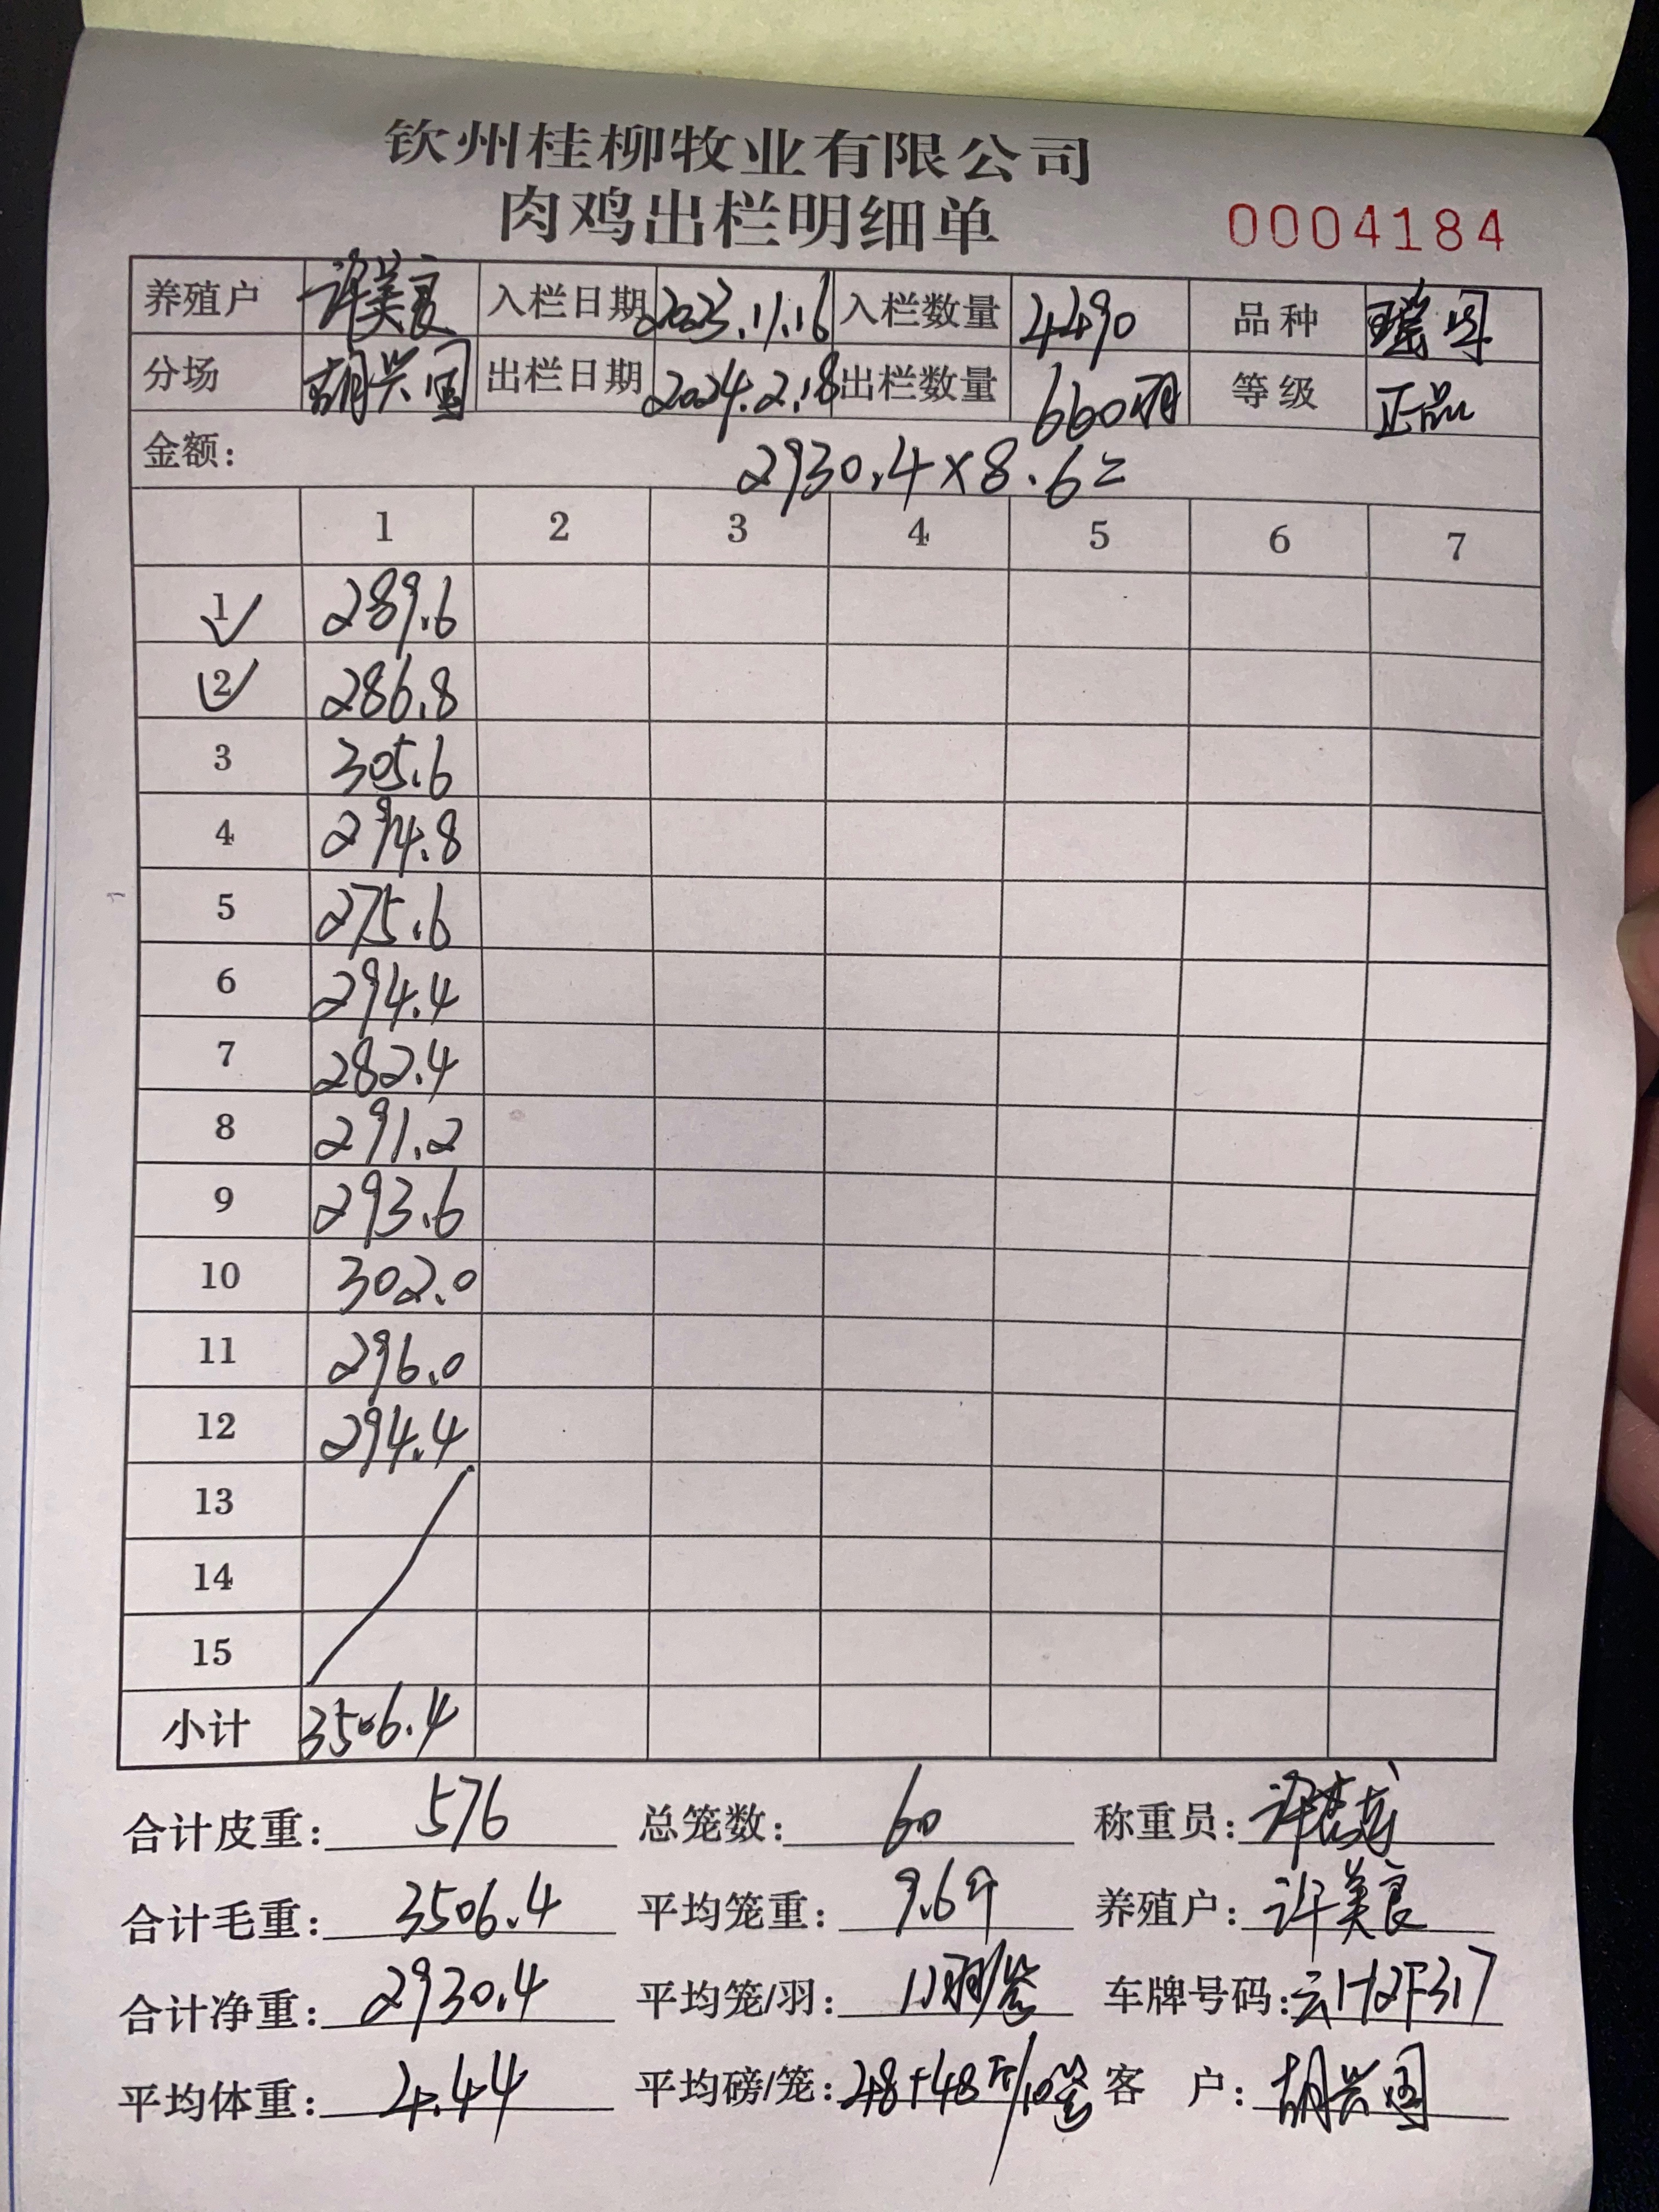 钦州桂柳牧业有限公司
肉鸡出栏明细单 0004184
养殖户 许美良 入栏日期 2023.11.16 入栏数量 4490 品种 瑶鸡
分场 胡兴国 出栏日期 2024.2.18 出栏数量 660羽 等级 正品
金额: 2930.4×8.6=
1 2 3 4 5 6 7
1 289.6
2 286.8
3 305.6
4 294.8
5 275.6
6 294.4
7 282.4
8 291.2
9 293.6
10 302.0
11 296.0
12 294.4
13
14
15
小计 3506.4
合计皮重: 576 总笼数: 60 称重员: 许
合计毛重: 3506.4 平均笼重: 9.6斤 养殖户: 许美良
合计净重: 2930.4 平均笼/羽: 11羽/笼 车牌号码: 云H2F317
平均体重: 4.44 平均磅/笼: 48+48斤/10笼 客 户: 胡兴国